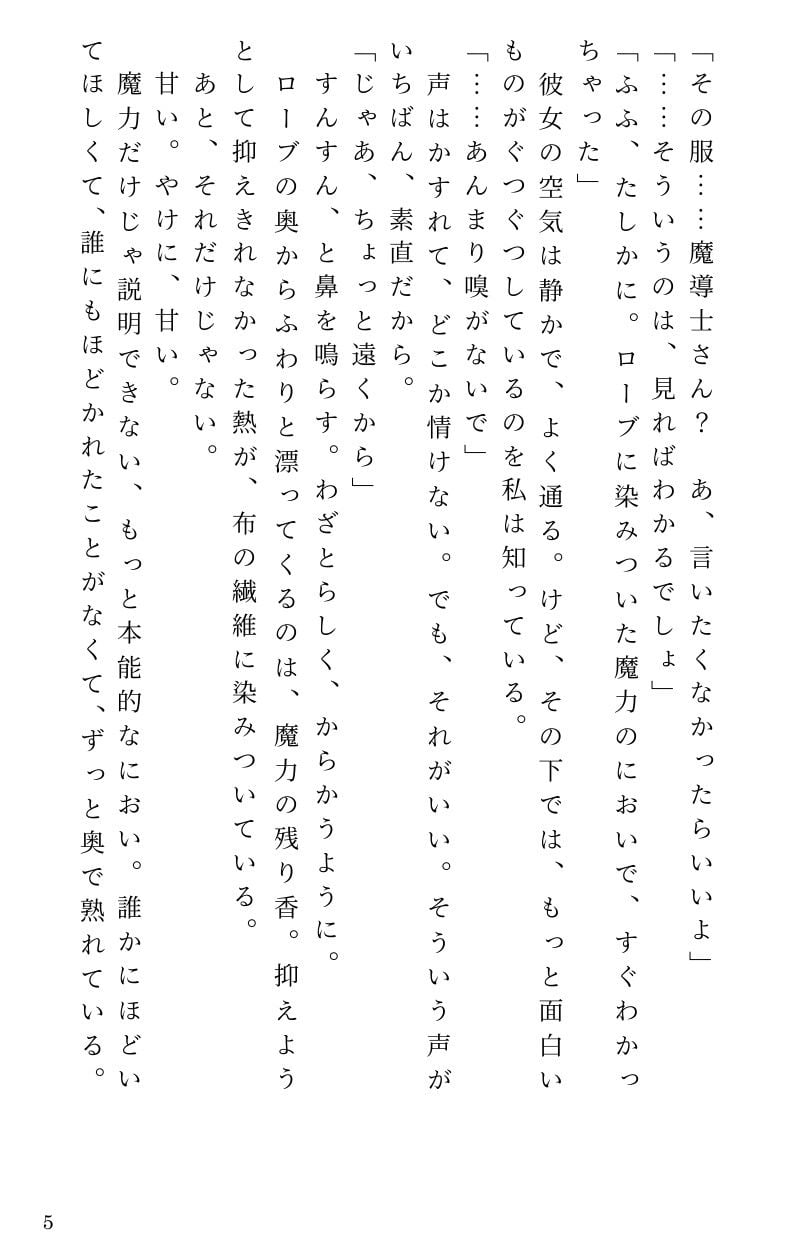 「その服……魔導士さん？　あ、言いたくなかったらいいよ」
「……そういうのは、見ればわかるでしょ」
「ふふ、たしかに。ローブに染みついた魔力のにおいで、すぐわかっ
ちゃった」
　彼女の空気は静かで、よく通る。けど、その下では、もっと面白い
ものがぐつぐつしているのを私は知っている。
「……あんまり嗅がないで」
　声はかすれて、どこか情けない。でも、それがいい。そういう声が
いちばん、素直だから。
「じゃあ、ちょっと遠くから」
　すんすん、と鼻を鳴らす。わざとらしく、からかうように。
　ローブの奥からふわりと漂ってくるのは、魔力の残り香。抑えよう
として抑えきれなかった熱が、布の繊維に染みついている。
　あと、それだけじゃない。
　甘い。やけに、甘い。
　魔力だけじゃ説明できない、もっと本能的なにおい。誰かにほどい
てほしくて、誰にもほどかれたことがなくて、ずっと奥で熟れている。
5